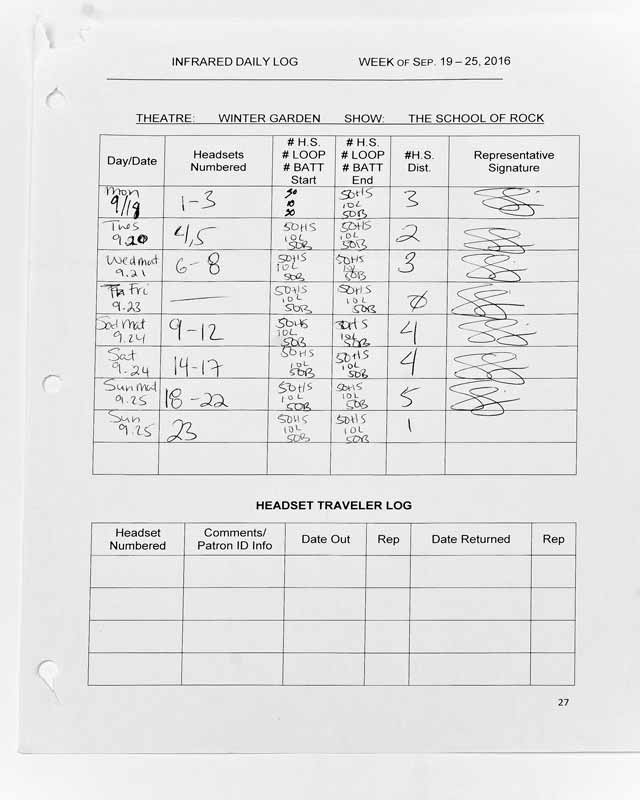 INFRARED DAILY LOG WEEK OF SEP. 19 – 25, 2016
THEATRE: WINTER GARDEN SHOW: THE SCHOOL OF ROCK
Day/Date Headsets Numbered # H.S. # LOOP # BATT Start # H.S. # LOOP # BATT End #H.S. Dist. Representative Signature
Mon 9/19 1-3 50 10 50 50HS 10L 50B 3
Tues 9.20 4,5 50HS 10L 50B 50HS 10L 50B 2
Wed mat 9.21 6-8 50HS 10L 50B 50HS 10L 50B 3
Fri 9.23 — 50HS 10L 50B 50HS 10L 50B 0
Sat mat 9.24 9-12 50HS 10L 50B 50HS 10L 50B 4
Sat 9.24 14-17 50HS 10L 50B 50HS 10L 50B 4
Sun mat 9.25 18-22 50HS 10L 50B 50HS 10L 50B 5
Sun 9.25 23 50HS 10L 50B 50HS 10L 50B 1
HEADSET TRAVELER LOG
Headset Numbered Comments/ Patron ID Info Date Out Rep Date Returned Rep
27